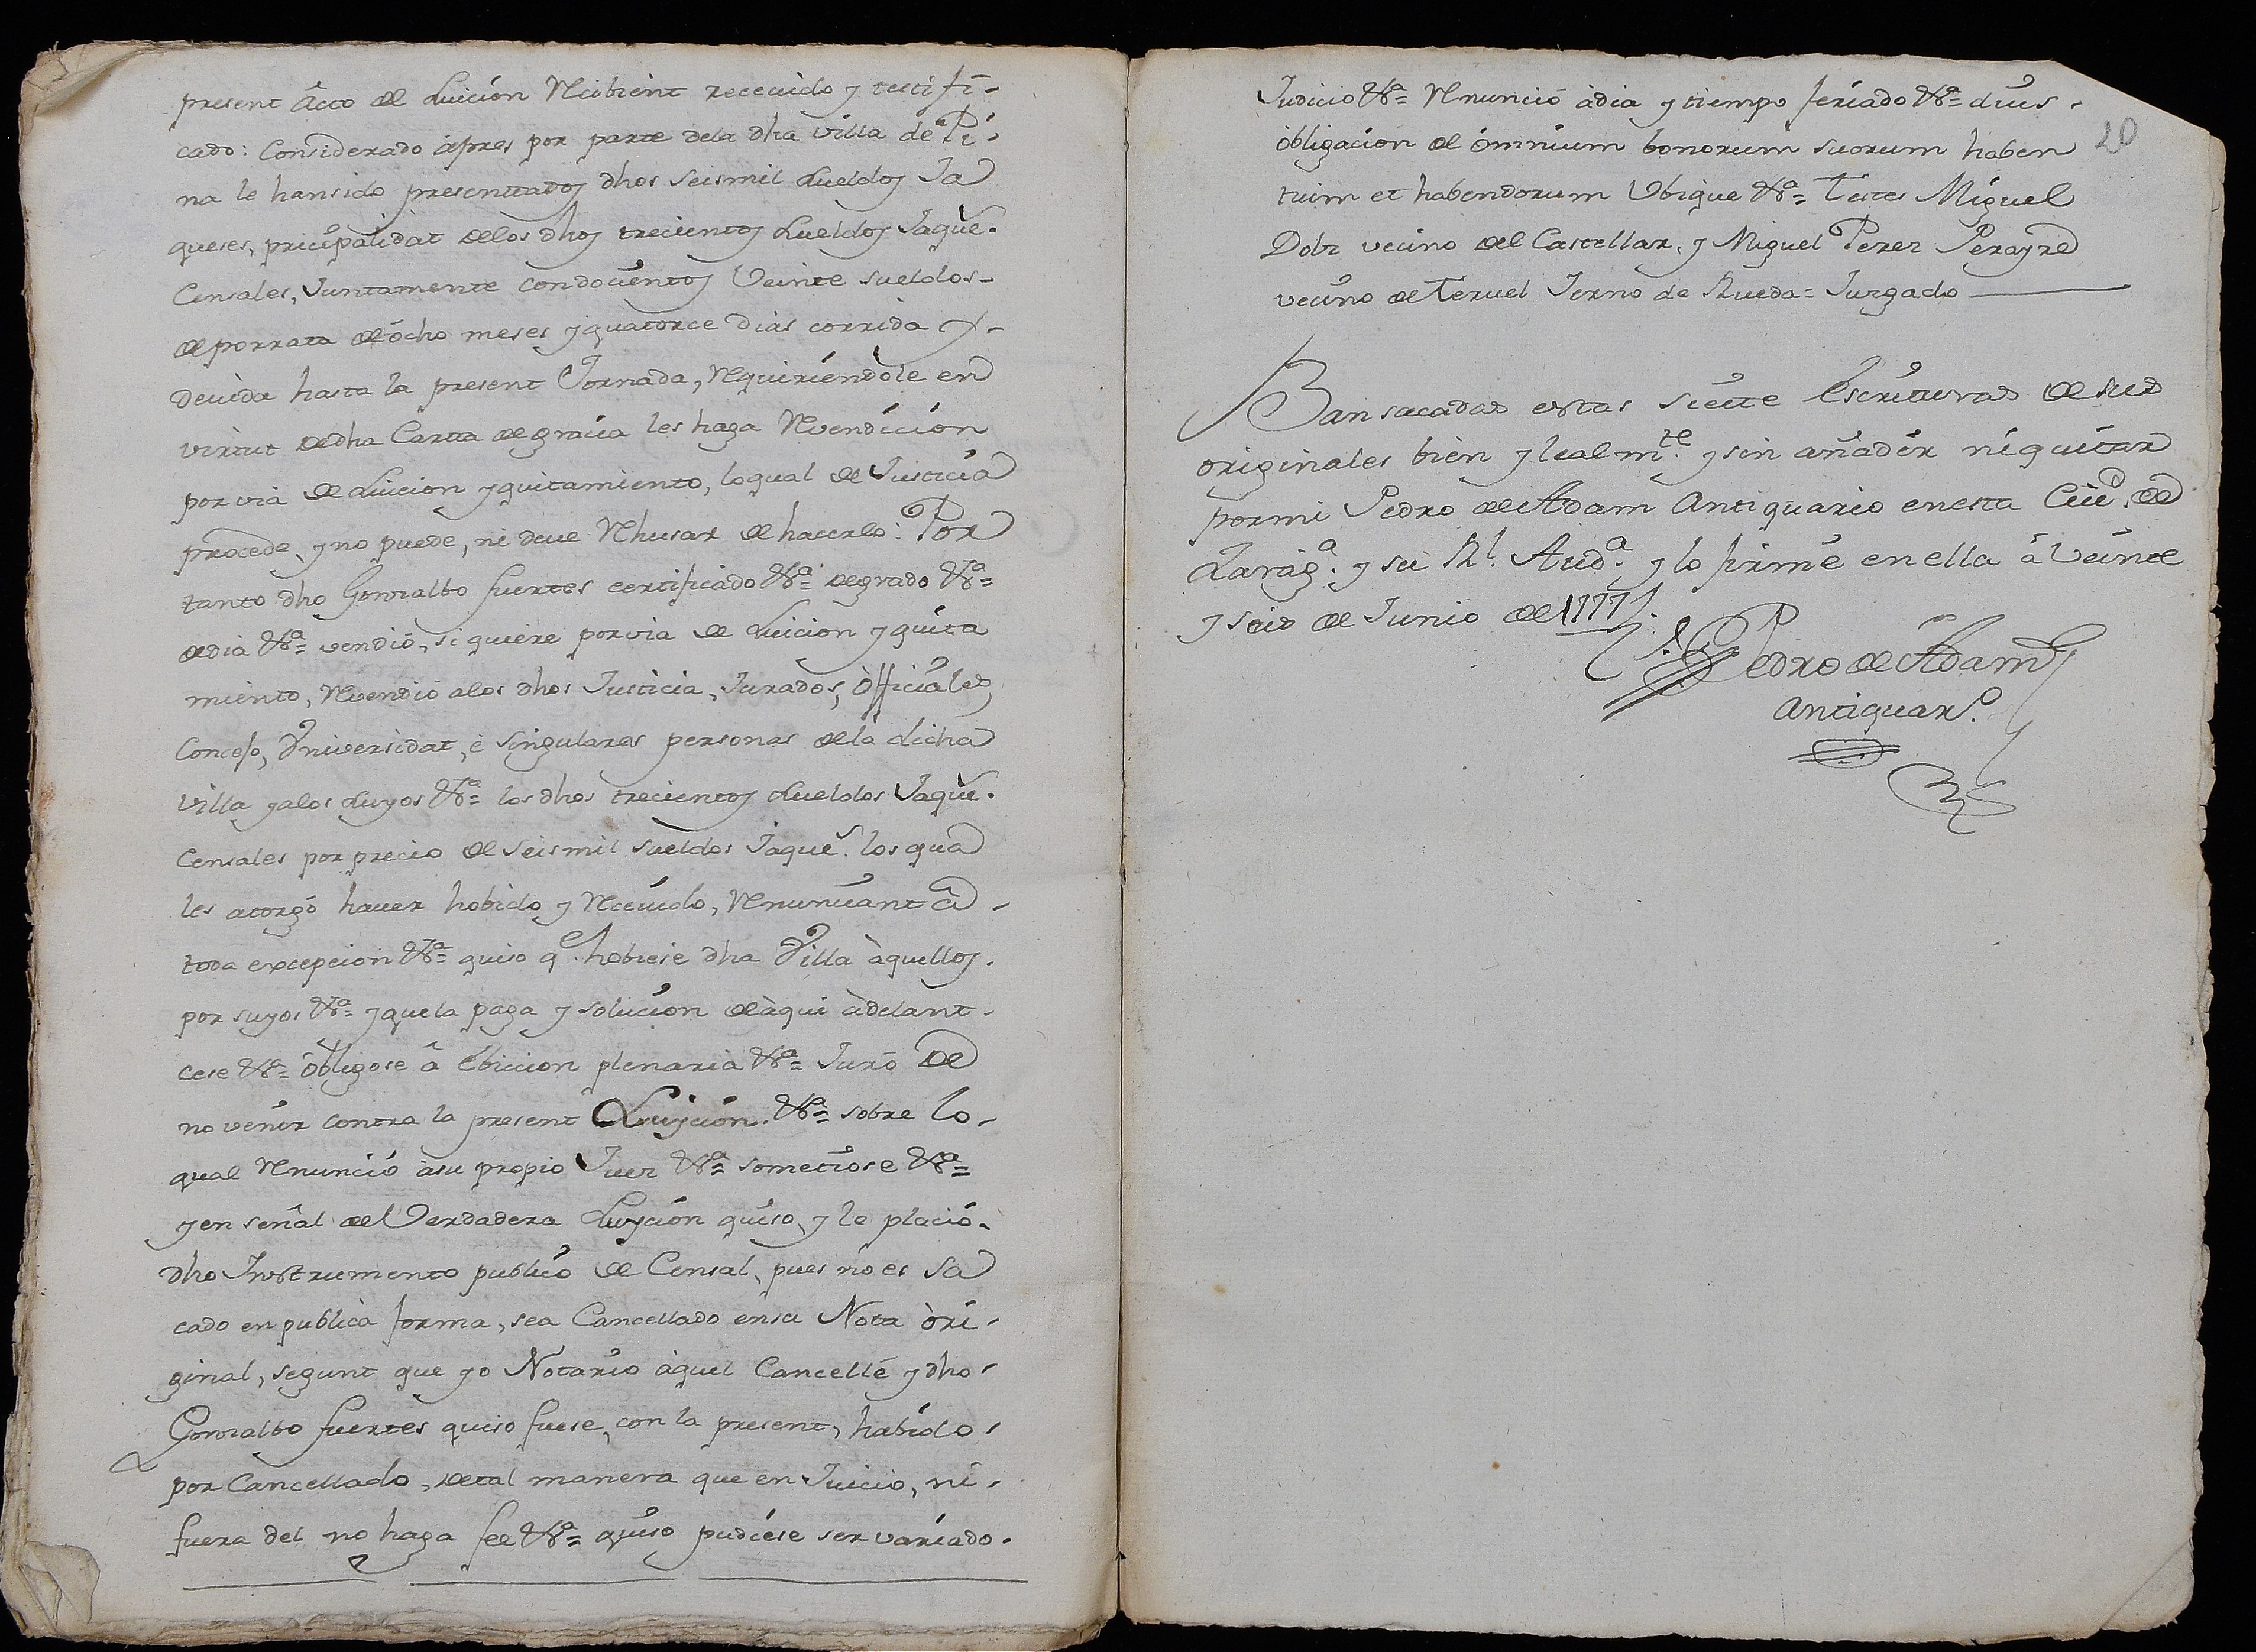 present ácto de Luición Recibient recevido y testifi-
cado: Considerado ápres por parte dela dha villa de Pi-
na le hansido presenttados dhos seismil sueldos Ja
queses, pricipalidat delos dhos trecientos sueldos Jaqs.
Censales, Juntamente condocientos Veinte sueldos-
deporrata de ócho meses yquatorce dias corrida y-
devida hasta la present Jornada, Requiriendole en
virtut dedha Carta degracia les haga Rvendicion
por via de Luicion yquitamiento, loqual de Justicia
procede, y no puede, ni deve Rhusar de hacerlo: Por
tanto dho Gonzalbo fuertes certificado &a= degrado &a=
dedia &a= vendió, siquiere porvia de Luicion yquita
miento, Rvendió alos dhos Justicia, Jurados, Officiales,
Concejo, Vniversidat, é singulares personas dela dicha
villa yalos suyos &a= los dhos trecientos sueldos Jaqs.
Censales por precio de seismil sueldos Jaqs. los qua
les atorgó haver hobido y Rcevido, Rnunciant á-
toda excepcion &a= quiso qe. hobiese dha Villa àquellos.
por suyos &a= yquela paga y solucion deàqui àdelant-
cese &a= óbligose á Ebiccion plenaria &a= Juró de
no venir contra la present Luycion. &a= sobre lo-
qual Rnunció àsu propio Juez &a= sometiose &a=
yen señal de Verdadera Luycion quiso, y le plació-
dho Instrumento publico de Censal, pues no es Sa
cado en publica forma, sea Cancellado ensu Nota òri-
ginal, segunt que yo Notario àquel Cancellé y dho-
Gonzalbo fuertes quiso fuese, con la present, habido-
por Cancellado, detal manera que en Juicio, ni-
fuera del no haga fee &a= quiso pudiese ser variado.
Judicio &a= Rnunció àdia y tiempo feriado &a= dius-
óbligacion de ómnium bonorum suorum haben
tuim et habendorum Vbique &a= Testes Miguel
Dolz vecino del Castellar, y Miguel Perez Perayre
vecino de Teruel Yerno de Rueda= Jurgado
20
Ban sacadas estas siette Escrituras de sus
originales bien y lealmte. y sin añadir niquitar
pormi Pedro de Adam Antiquario enesta Ciud. de
Zaraga. y su Rl. Auda. y lo firmé en ella á Veinte
y seis de Junio de 1777.
Pedro de Adam
Antiquaro.